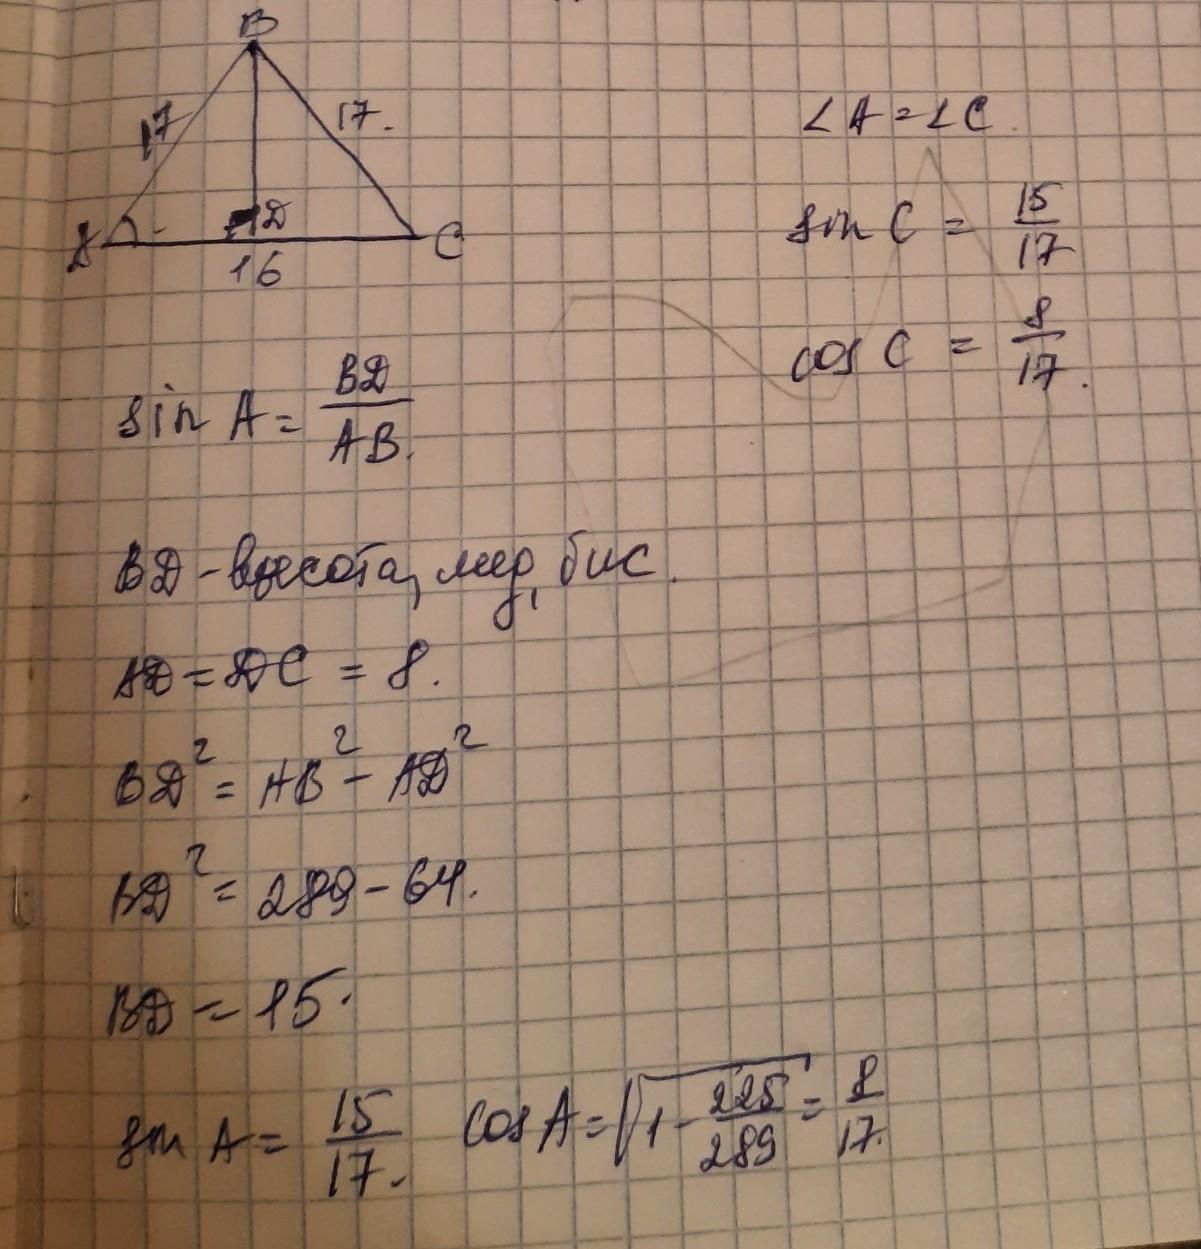 B
17
17.
A
D
C
16
∠A = ∠C.
sin C = 15/17
cos C = 8/17.
sin A = BD/AB.
BD - высота, мед, бис.
AD = DC = 8.
BD² = AB² - AD²
BD² = 289 - 64.
BD = 15.
sin A = 15/17. cos A = √(1 - 225/289) = 8/17.